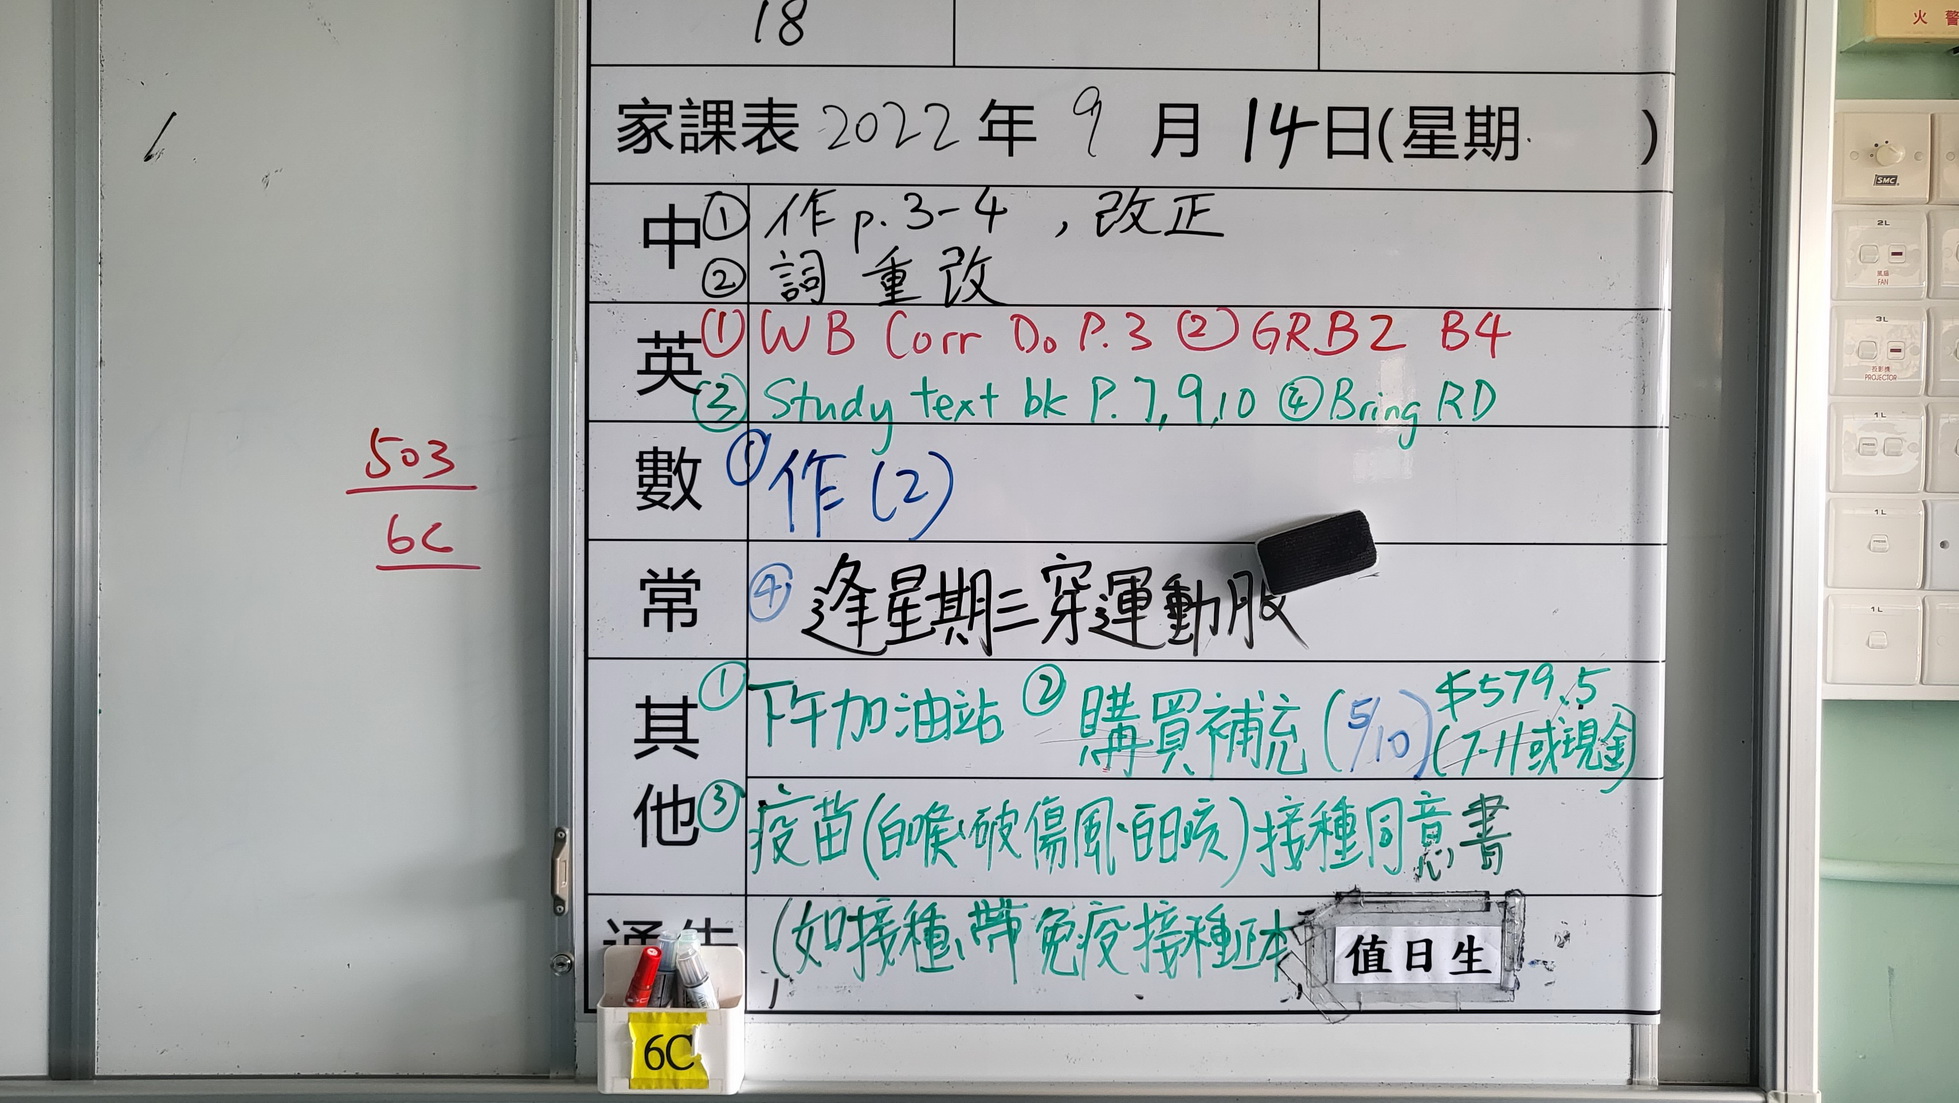 18
家課表 2022 年 9 月 14 日(星期 )
中 ① 作 p. 3-4 , 改正
② 詞 重改
英 ① WB Corr Do P. 3 ② GRB2 B4
③ Study text bk P. 7, 9, 10 ④ Bring RD
數 ① 作 (2)
常 ④ 逢星期三穿運動服
其他 ① 下午加油站 ② 購買補充 (5/10) $579.5
(7-11或現金)
③ 疫苗(白喉、破傷風、百日咳)接種同意書
(如接種、帶免疫接種正本
值日生
503
6C
6C
火警
SMC
2L
風扇
FAN
3L
投影機
PROJECTOR
1L
1L
PRESS
1L